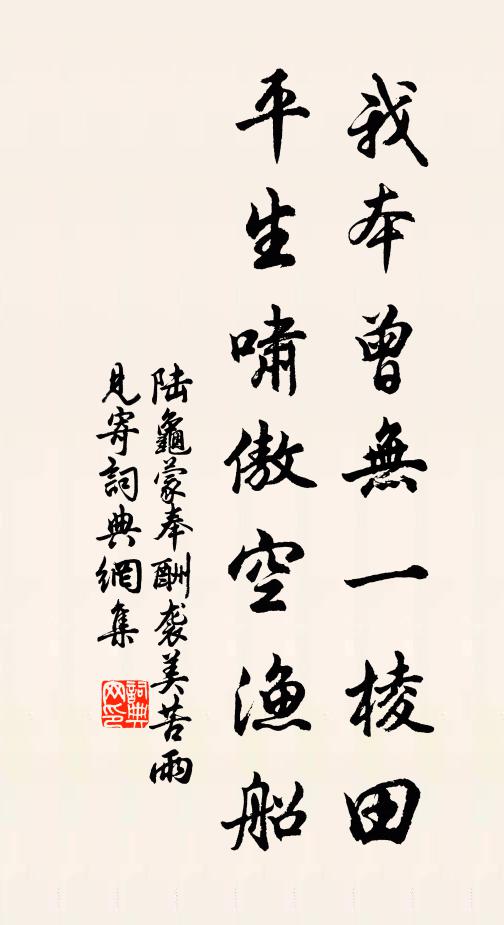 我本曾無一棱田
平生嘯傲空漁船
陸龜蒙奉酬袭美苦雨
見寄詞典網集
詞典網印